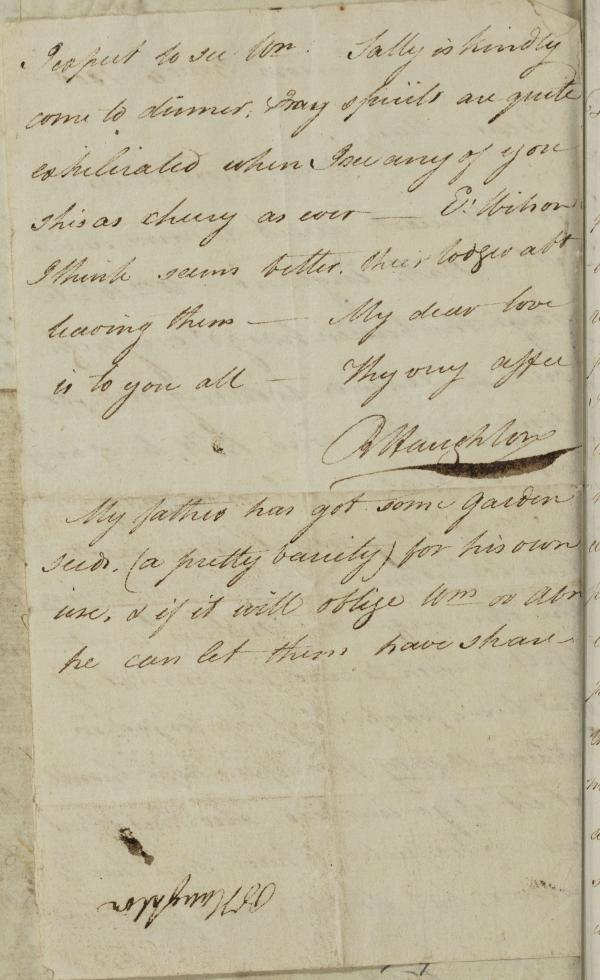 I expect to see Wm. Sally is kindly
come to dinner, my spirits are quite
exhilirated when I see any of you
She as cheery as ever — E: Wilson
I think seems better, their lodger abt
leaving them — My dear love
is to you all — Thy very affec
Haughton
My father has got some garden
seeds, (a pretty variety) for his own
use, & if it will oblige Wm or Abm
he can let them have share
Haughton